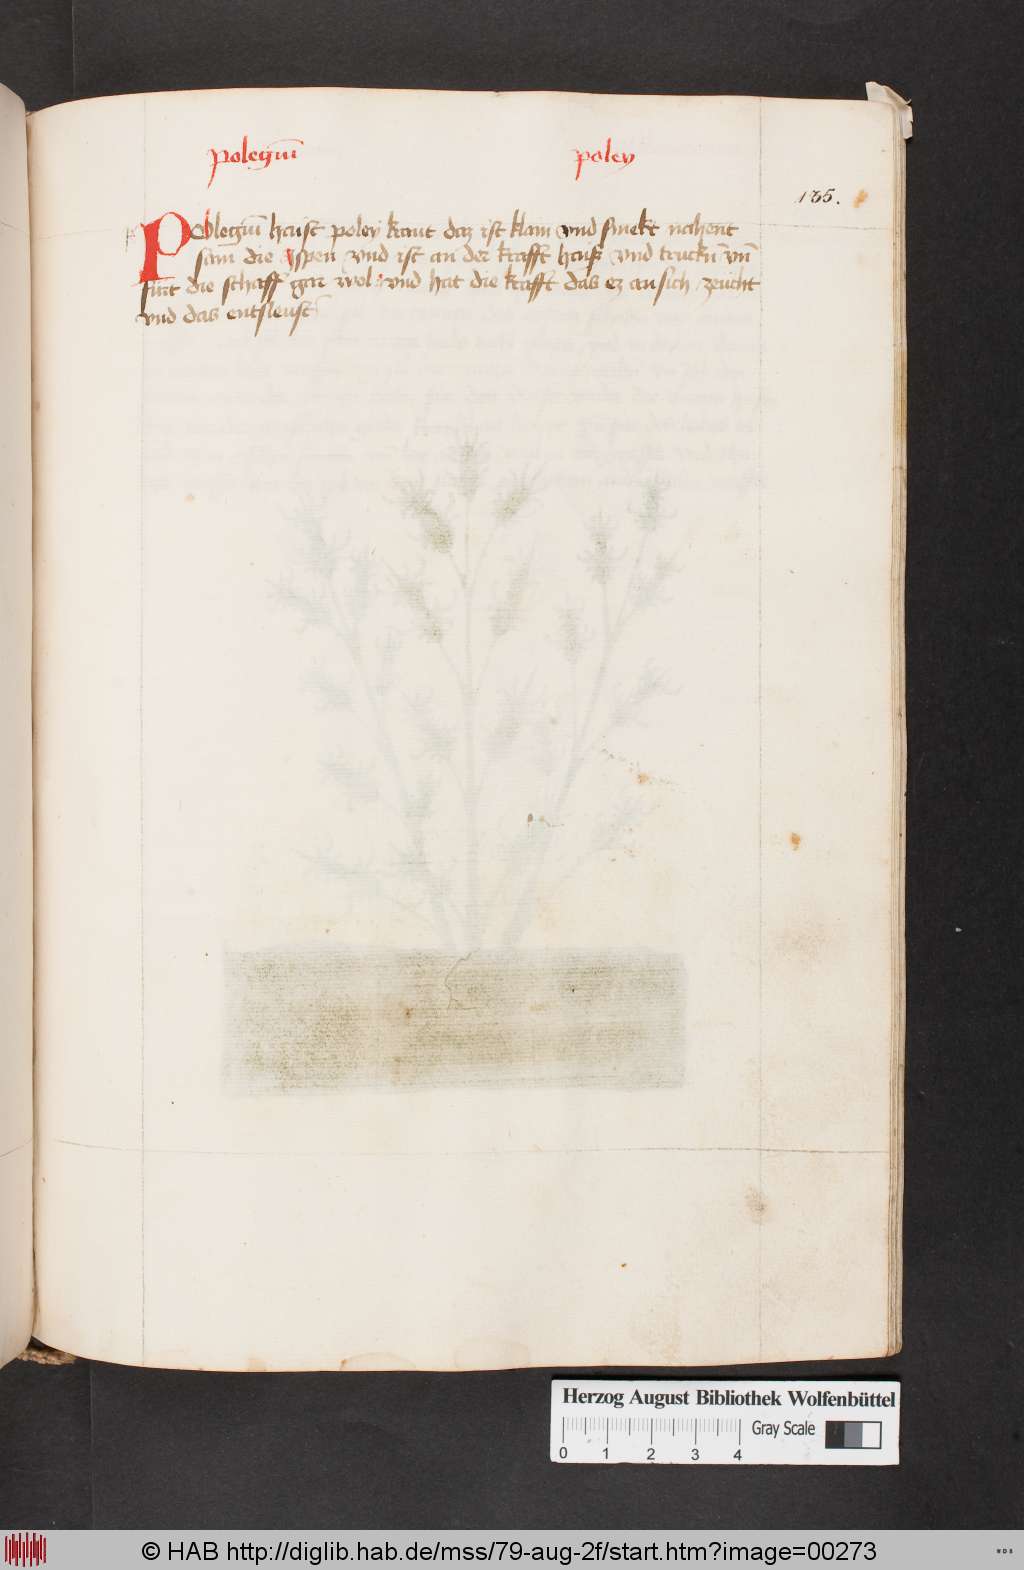 polegiu̅ poley
185.
POlegiu̅ haist poley kraut daz ist klain vnd smekt nahent
sam die yspen vnd ist an der krafft haiß vnd trucke̅ vn̅
fürt die schaff gar wol vnd hat die krafft das ez an sich zeücht
vnd das entsleust
Herzog August Bibliothek Wolfenbüttel
Gray Scale
0 1 2 3 4
© HAB http://diglib.hab.de/mss/79-aug-2f/start.htm?image=00273